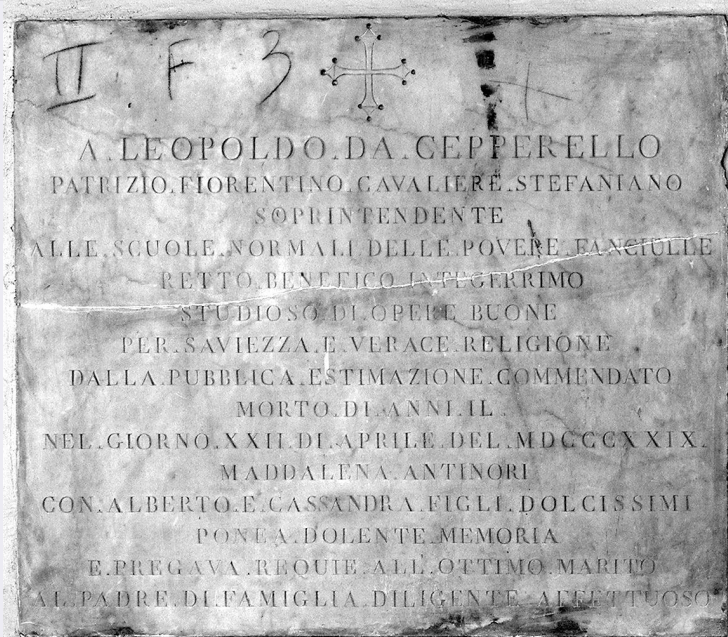 II F 3
A.LEOPOLDO.DA.CEPPERELLO
PATRIZIO.FIORENTINO.CAVALIERE.STEFANIANO
SOPRINTENDENTE
ALLE.SCUOLE.NORMALI.DELLE.POVERE.FANCIULLE
RETTO.BENEFICO.INTEGERRIMO
STUDIOSO.DI.OPERE.BUONE
PER.SAVIEZZA.E.VERACE.RELIGIONE
DALLA.PUBBLICA.ESTIMAZIONE.COMMENDATO
MORTO.DI.ANNI.IL.
NEL.GIORNO.XXII.DI.APRILE.DEL.MDCCCXXIX.
MADDALENA.ANTINORI
CON.ALBERTO.E.CASSANDRA.FIGLI.DOLCISSIMI
PONEA.DOLENTE.MEMORIA
E.PREGAVA.REQUIE.ALL.OTTIMO.MARITO
AL.PADRE.DI.FAMIGLIA.DILIGENTE.AFFETTUOSO